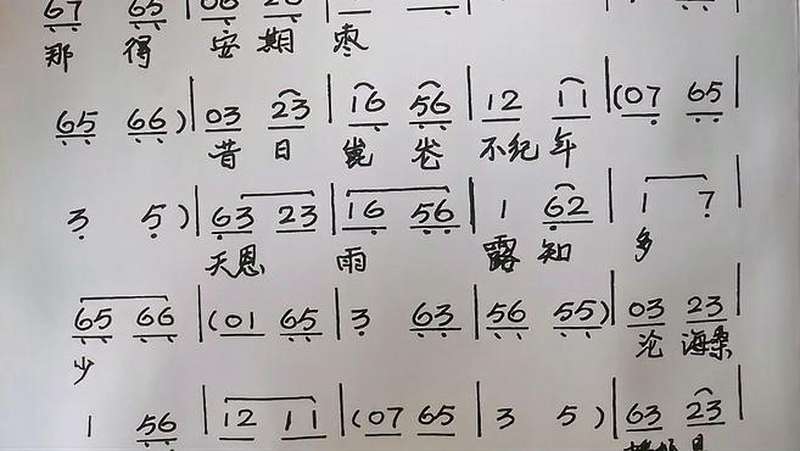 67 65 | 06 23 |
那 得 安 期 枣
65 66 ) | 03 23 | 16 56 | 12 11 | (07 65 |
昔 日 崑 崙 不 纪 年
3 5 ) | 63 23 | 16 56 | 1 62 | 1 7 |
天恩 雨 露 知 多
65 66 | (01 65 | 3 63 | 56 55) | 03 23 |
少 沧 海桑
1 56 | 12 11 | (07 65 | 3 5 ) | 63 23 |